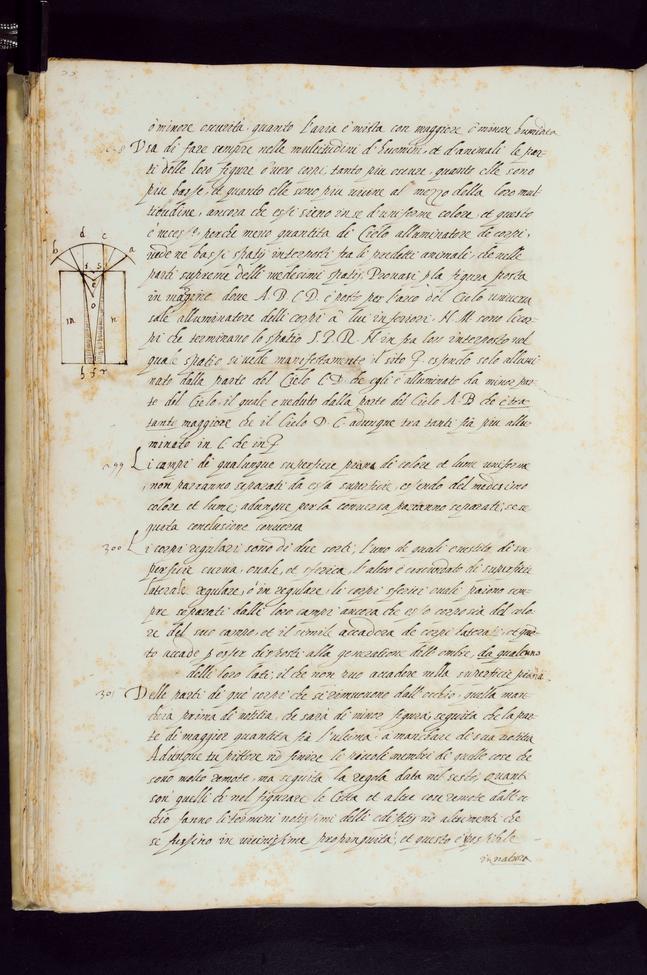 ò minore oscurità quanto l'aria è mista con maggiore ò minore humidità
298 Usa di fare sempre nelle multitudini d'huomini, et d'animali le par-
ti delle loro figure ò vero corpi, tanto piu oscure, quanto elle sono
piu basse, et quanto elle sono piu vicine al mezzo della loro mul-
titudine, ancora che essi sieno in se d'uniforme colore, et questo
è necess.º, perche meno quantità di Cielo alluminatore de corpi,
vede ne bassi spatij interposti fra li predetti animali, che nelle
parti supreme delli medesimi spatij. Provasi p la figura posta
in margine dove A. B. C. D. è posto per l'arco del Cielo universa
sale alluminatore delli corpi à lui inferiori. H. M. sono li cor-
pi che terminano lo spatio S. P. R. H in fra loro interposto nel
quale spatio si vede manifestamente il sito essendo solo allumi
nato dalla parte del Cielo C D. che egli è alluminato da minor par-
te del Cielo, il quale è veduto dalla parte del Cielo A B che è tra
tanti maggiore che il Cielo D. C. adunque tra tanti sia piu allu-
minato in
299 Li campi di qualunque superficie piana di colore et lume uniforme
non parranno separati da essa superficie, essendo del medesimo
colore et lume; adunque per la conversa parranno separati, se se-
guita conclusione conversa
300 Li corpi regulari sono di due sorti; l'uno de quali è vestito di su-
perficie curva, ovale, et sferica, l'altro è circundato di superficie
laterale regulare, ò in regulare, li corpi sferici ovali paiono sem-
pre separati dalle loro campi ancora che esso corpo sia del colo-
re del suo campo, et il simile accaderà de corpi laterati, et que-
to accade p esser disposti alla generatione dell'ombre, da qualcuno
delli loro lati; il che non puo accadere nella superficie piana.
301 Delle parti di que corpi che si remuovono dall'occhio, quella man-
cherà prima di notitia, che sarà di minor figura, seguita che la par-
te di maggior quantità sia l'ultima à mancare di sua notitia
Adunque tu pittore nō finire le piccoli membri di quelle cose che
sono molto remote, ma seguita la regola data nel sesto, Quanti
son' quelli che nel figurare le Città et altre cose remote dall'oc-
chio fanno li termini notissimi delli edifitij nō altrimenti che
se fussino in vicinissima propinquità, et questo è possibile
in natura
a
b
c
d
f
s
e
o
m
n
h
r